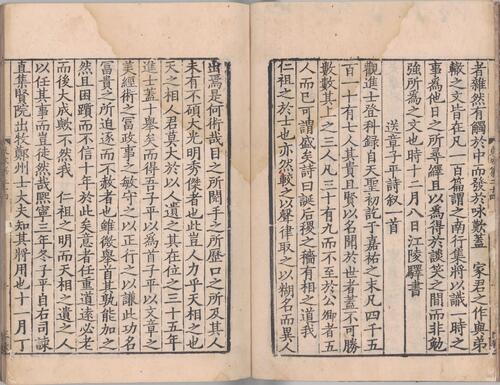 者雜然有觸於中而發於咏歎蓋 家君之作與弟
轍之文皆在凡一百篇謂之南行集將以識一時之
事爲他日之所尋繹且以爲得於談笑之間而非勉
強所爲之文也時十二月八日江陵驛書
送章子平詩叙一首
觀進士登科錄自天聖初訖于嘉祐之末凡四千五
百一十有七人其貴且賢以名聞於世者蓋不可勝
數數其上之三人凡三十有九而不至於公卿者五
人而已可謂盛矣詩曰誕后稷之穡有相之道我
仁祖之於士也亦然較之以聲律取之以糊名而異人
出焉是何術哉目之所閱手之所歷口之所及其人
未有不碩大光明秀傑者也此豈人力乎天相之也
天之相人君莫大於以人遺之其在位之三十五年
進士蓋十舉矣而得吾子平以爲首子平以文章之
美經術之富政事之敏守之以正行之以謙此功名
冨貴之所迫逐而不赦者也雖微舉首其孰能加之
然且困躓而不信十年於此矣意者任重道逺必老
而後大成歟不然我 仁祖之明而天相之遺之人
以任其事而豈徒然哉熙寧三年冬子平自右司諫
直集賢院出牧鄭州士大夫知其將用也十一月丁